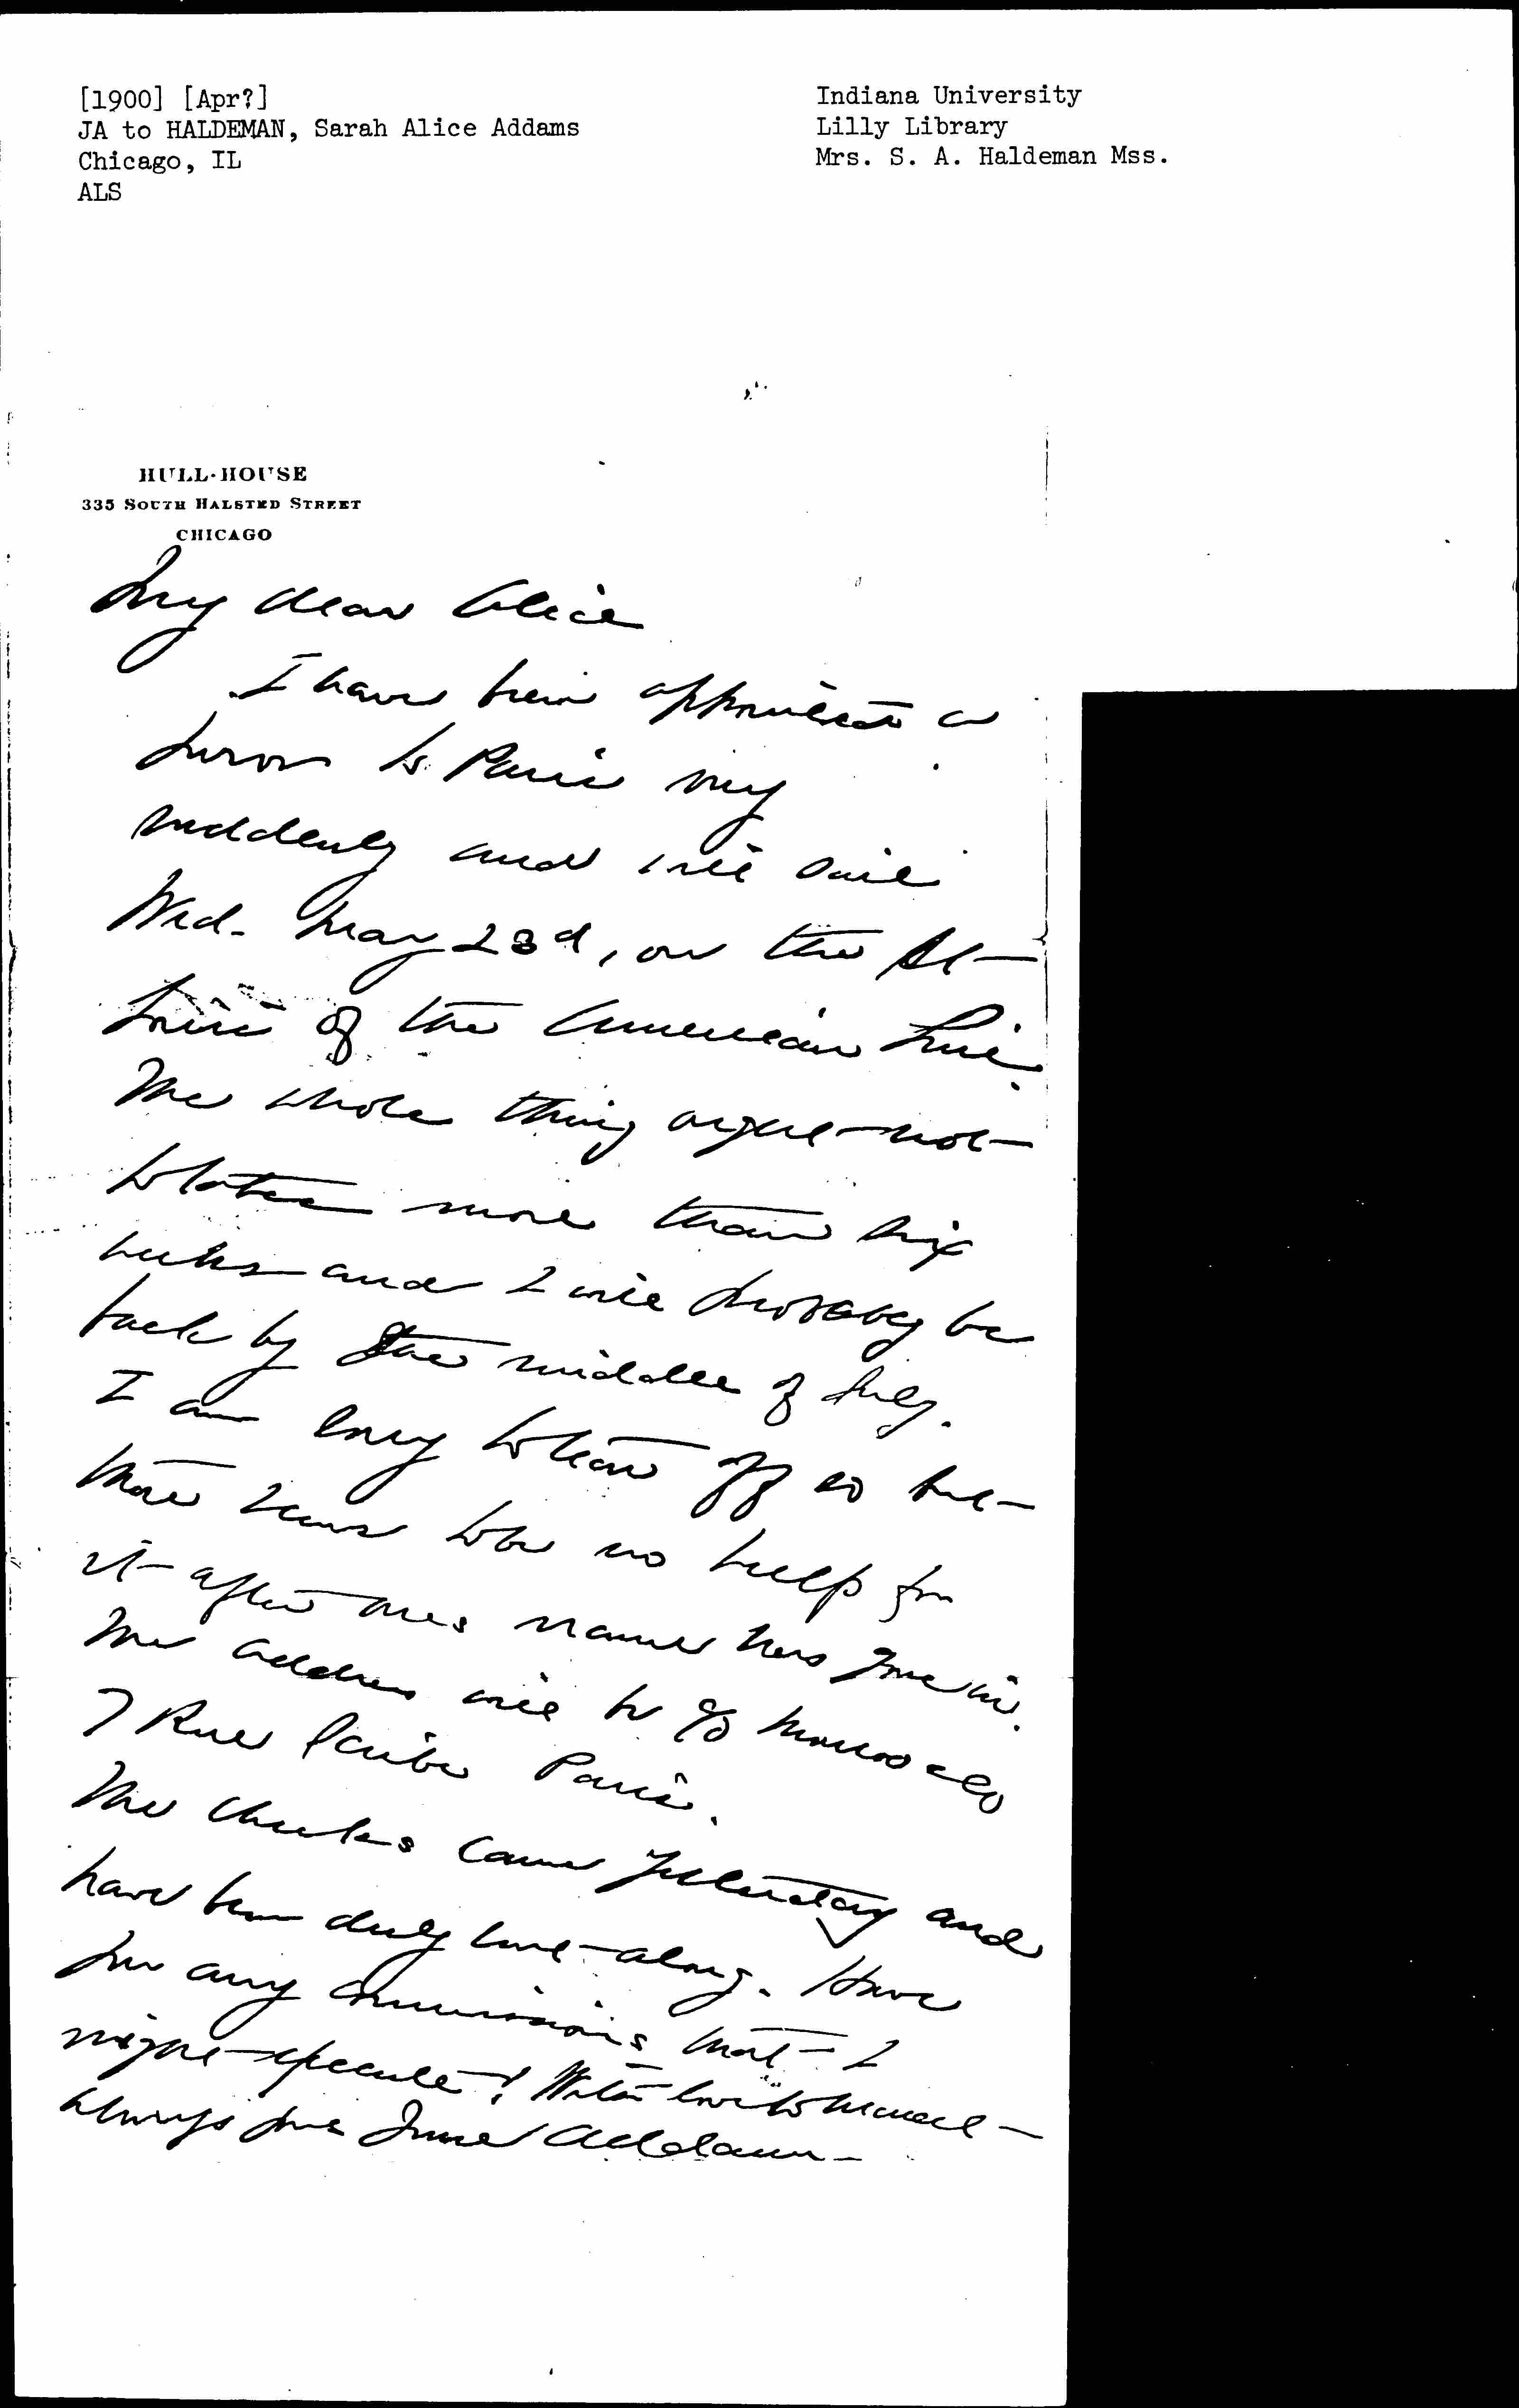 [1900] [Apr?]
JA to HALDEMAN, Sarah Alice Addams
Chicago, IL
ALS
Indiana University
Lilly Library
Mrs. S. A. Haldeman Mss.
HULL-HOUSE
335 SOUTH HALSTED STREET
CHICAGO
My dear Alice
I have been appointed a
juror to Paris very
suddenly and will sail
Wed. May 23d, on the St
Louis of the American Line.
The whole thing ought not
to take more than six
weeks and I will probably be
back by the middle of July.
I am sorry to hear off so but
there seems to be no help for
it after one's name has gone in.
The address will be c/o Munroe & Co
7 Rue Scribe Paris.
The checks came yesterday and
have been duly sent along. Have
you any commissions that I
might execute? With love to Marcet
Always yours Jane Addams